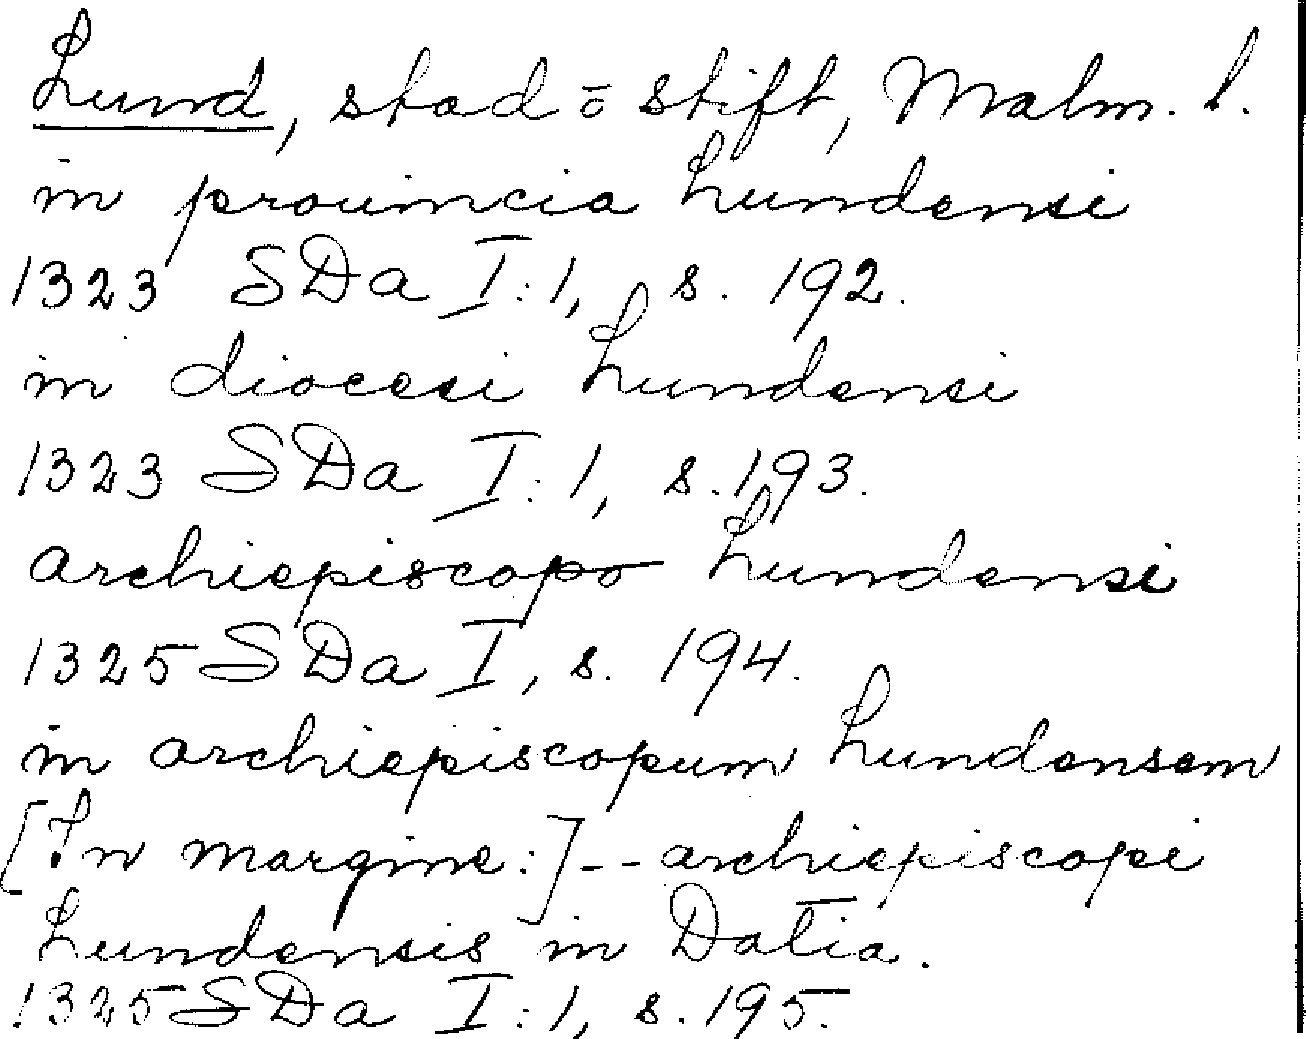 Lund, stad o stift, Malm. l.
in prouincia Lundensi
1323 SDa I:1, s. 192.
in diocesi Lundensi
1323 SDa I:1, s. 193.
archiepiscopo Lundensi
1325 SDa I, s. 194.
in archiepiscopum Lundensem
[In margine:] -- archiepiscopi
Lundensis in Datia.
1325 SDa I:1, s. 195.